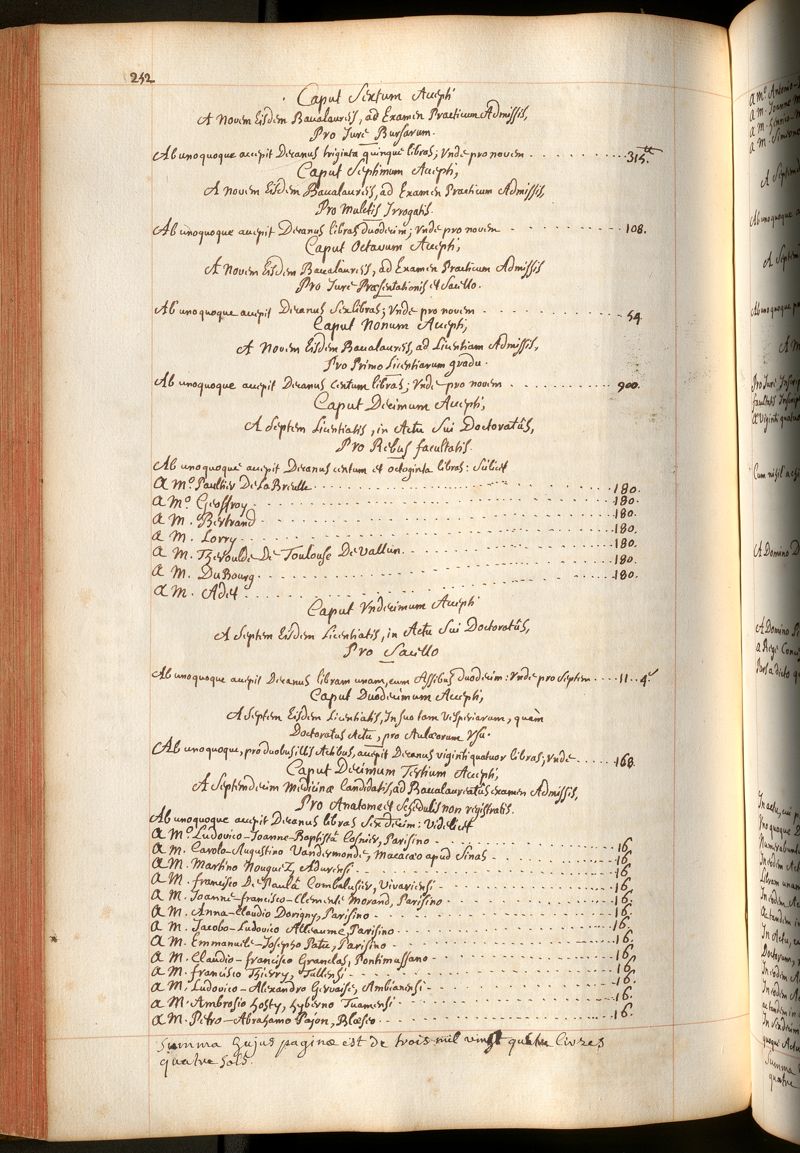 252
Caput Sextum Accepti
A Novem Eisdem Baccalaureis, ad Examen Practicum Admissis,
Pro Jure Bursarum.
Ab unoquoque accepit Decanus triginta quinque libras; Vnde pro novem . . . . . . 315.tt
Caput Septimum Accepti,
A Novem Eisdem Baccalaureis, ad Examen Practicum Admissis,
Pro Mulctis Irrogatis.
Ab unoquoque accepit Decanus libras duodecim; Vnde pro novem . . . . . . 108.
Caput Octavum Accepti,
A Novem Eisdem Baccalaureis, ad Examen Practicum Admissis
Pro Jure Præsentationis et Sacello.
Ab unoquoque accepit Decanus Sex libras; Vnde pro novem . . . . . . 54
Caput Nonum Accepti,
A Novem Eisdem Baccalaureis, ad Licentiam Admissis,
Pro Primo Licentiarum gradu.
Ab unoquoque accepit Decanus centum libras; Vnde pro novem . . . . . . 900.
Caput Decimum Accepti,
A Septem Licentiatis, in Actu Sui Doctoratûs,
Pro Rebus facultatis.
Ab unoquoque accepit Decanus centum et octoginta libras: Scilicet
A Mo. Paultier De La Breille . . . . . . 180.
A Mo. Geoffroy . . . . . . 180.
A M. Bertrand . . . . . . 180.
A M. Lorry . . . . . . 180.
A M. Theroulde De Toulouse De Vallun . . . . . . 180.
A M. DuBourg . . . . . . 180.
A M. Adet . . . . . . 180.
Caput Vndecimum Accepti
A Septem Eisdem Licentiatis, in Actu Sui Doctoratûs,
Pro Sacello
Ab unoquoque accepit Decanus libram unam, cum Assibus duodecim: Vnde pro Septem . . . . 11 . . 4.s
Caput Duodecimum Accepti,
A Septem Eisdem Licentiatis, In Suo tam Vesperiarum, quàm
Doctoratus Actu, pro Aulæorum Vsu.
Ab unoquoque, pro duobus illis Actibus, accepit Decanus viginti quatuor libras; Vnde . . . . . . 168.
Caput Decimum Tertium Accepti,
A Septemdecim Medicinæ Candidatis, ad Baccalaureatus examen Admissis,
Pro Anatome et Schedulis non registratis.
Ab unoquoque accepit Decanus libras Sexdecim: Videlicet
A Mo. Ludovico-Joanne-Baptista Cosnier, Parisino . . . . . . 16.
A M. Carolo-Augustino Vandermonde, Macacao apud Sinas . . . . . . 16.
A M. Martino Nouguez, Adurensi . . . . . . 16.
A M. francisco De Paulâ Combalusier, Vivariensi . . . . . . 16.
A M. Joanne-francisco-Clemente Morand, Parisino . . . . . . 16.
A M. Anna-Claudio Dorigny, Parisino . . . . . . 16.
A M. Jacobo-Ludovico Alleaume, Parisino . . . . . . 16.
A M. Emmanuele-Josepho Patu, Parisino . . . . . . 16.
A M. Claudio-francisco Granclas, Pontimussano . . . . . . 16.
A M. francisco Thierry, Tullensi . . . . . . 16.
A M. Ludovico-Alexandro Gervaise, Ambianensi . . . . . . 16.
A M. Ambrosio Hosty, Hyberno Tuamensi . . . . . . 16.
A M. Petro-Abrahamo Pajon, Blœseo . . . . . . 16.
Summa hujus paginæ est de trois mil vingt quatre livres
quatre sols.